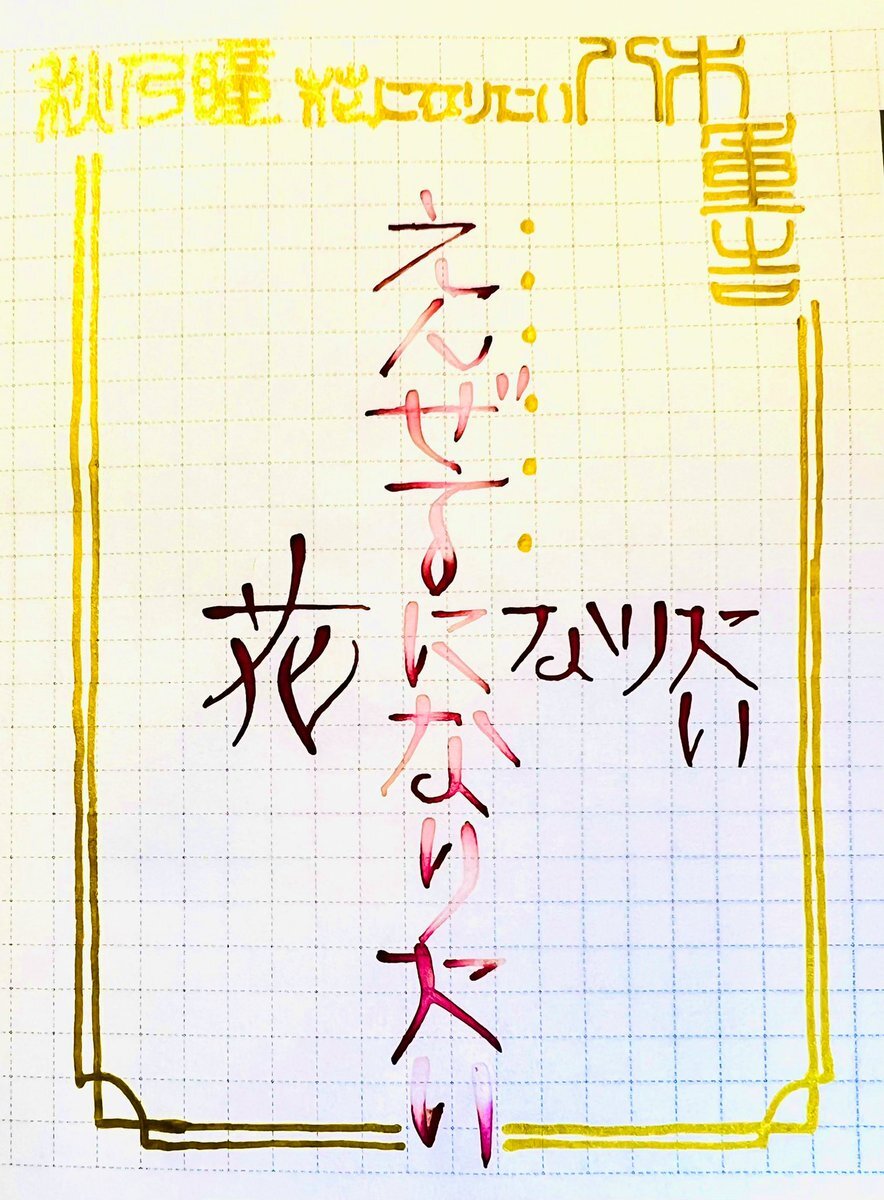 秋乃瞳 花になりたい 八木重吉
えんぜるになりたい
花になりたい